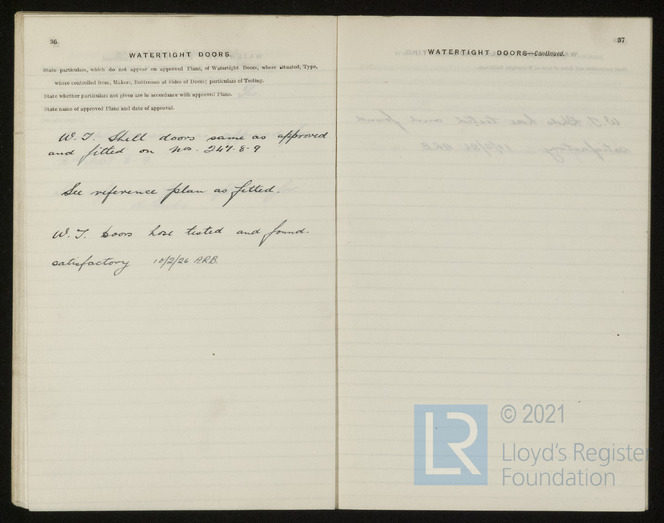 36
WATERTIGHT DOORS.
State particulars, which do not appear on approved Plans, of Watertight Doors, where situated, Type,
where controlled from, Makers, Buttresses at Sides of Doors; particulars of Testing.
State whether particulars not given are in accordance with approved Plans.
State name of approved Plans and date of approval.
W. T. Shell doors same as approved
and fitted on Nos. 247-8-9
See reference plan as fitted.
W. T. Doors hose tested and found.
satisfactory 10/2/26 ARB.
37
WATERTIGHT DOORS—Continued.
LR
© 2021
Lloyd's Register
Foundation